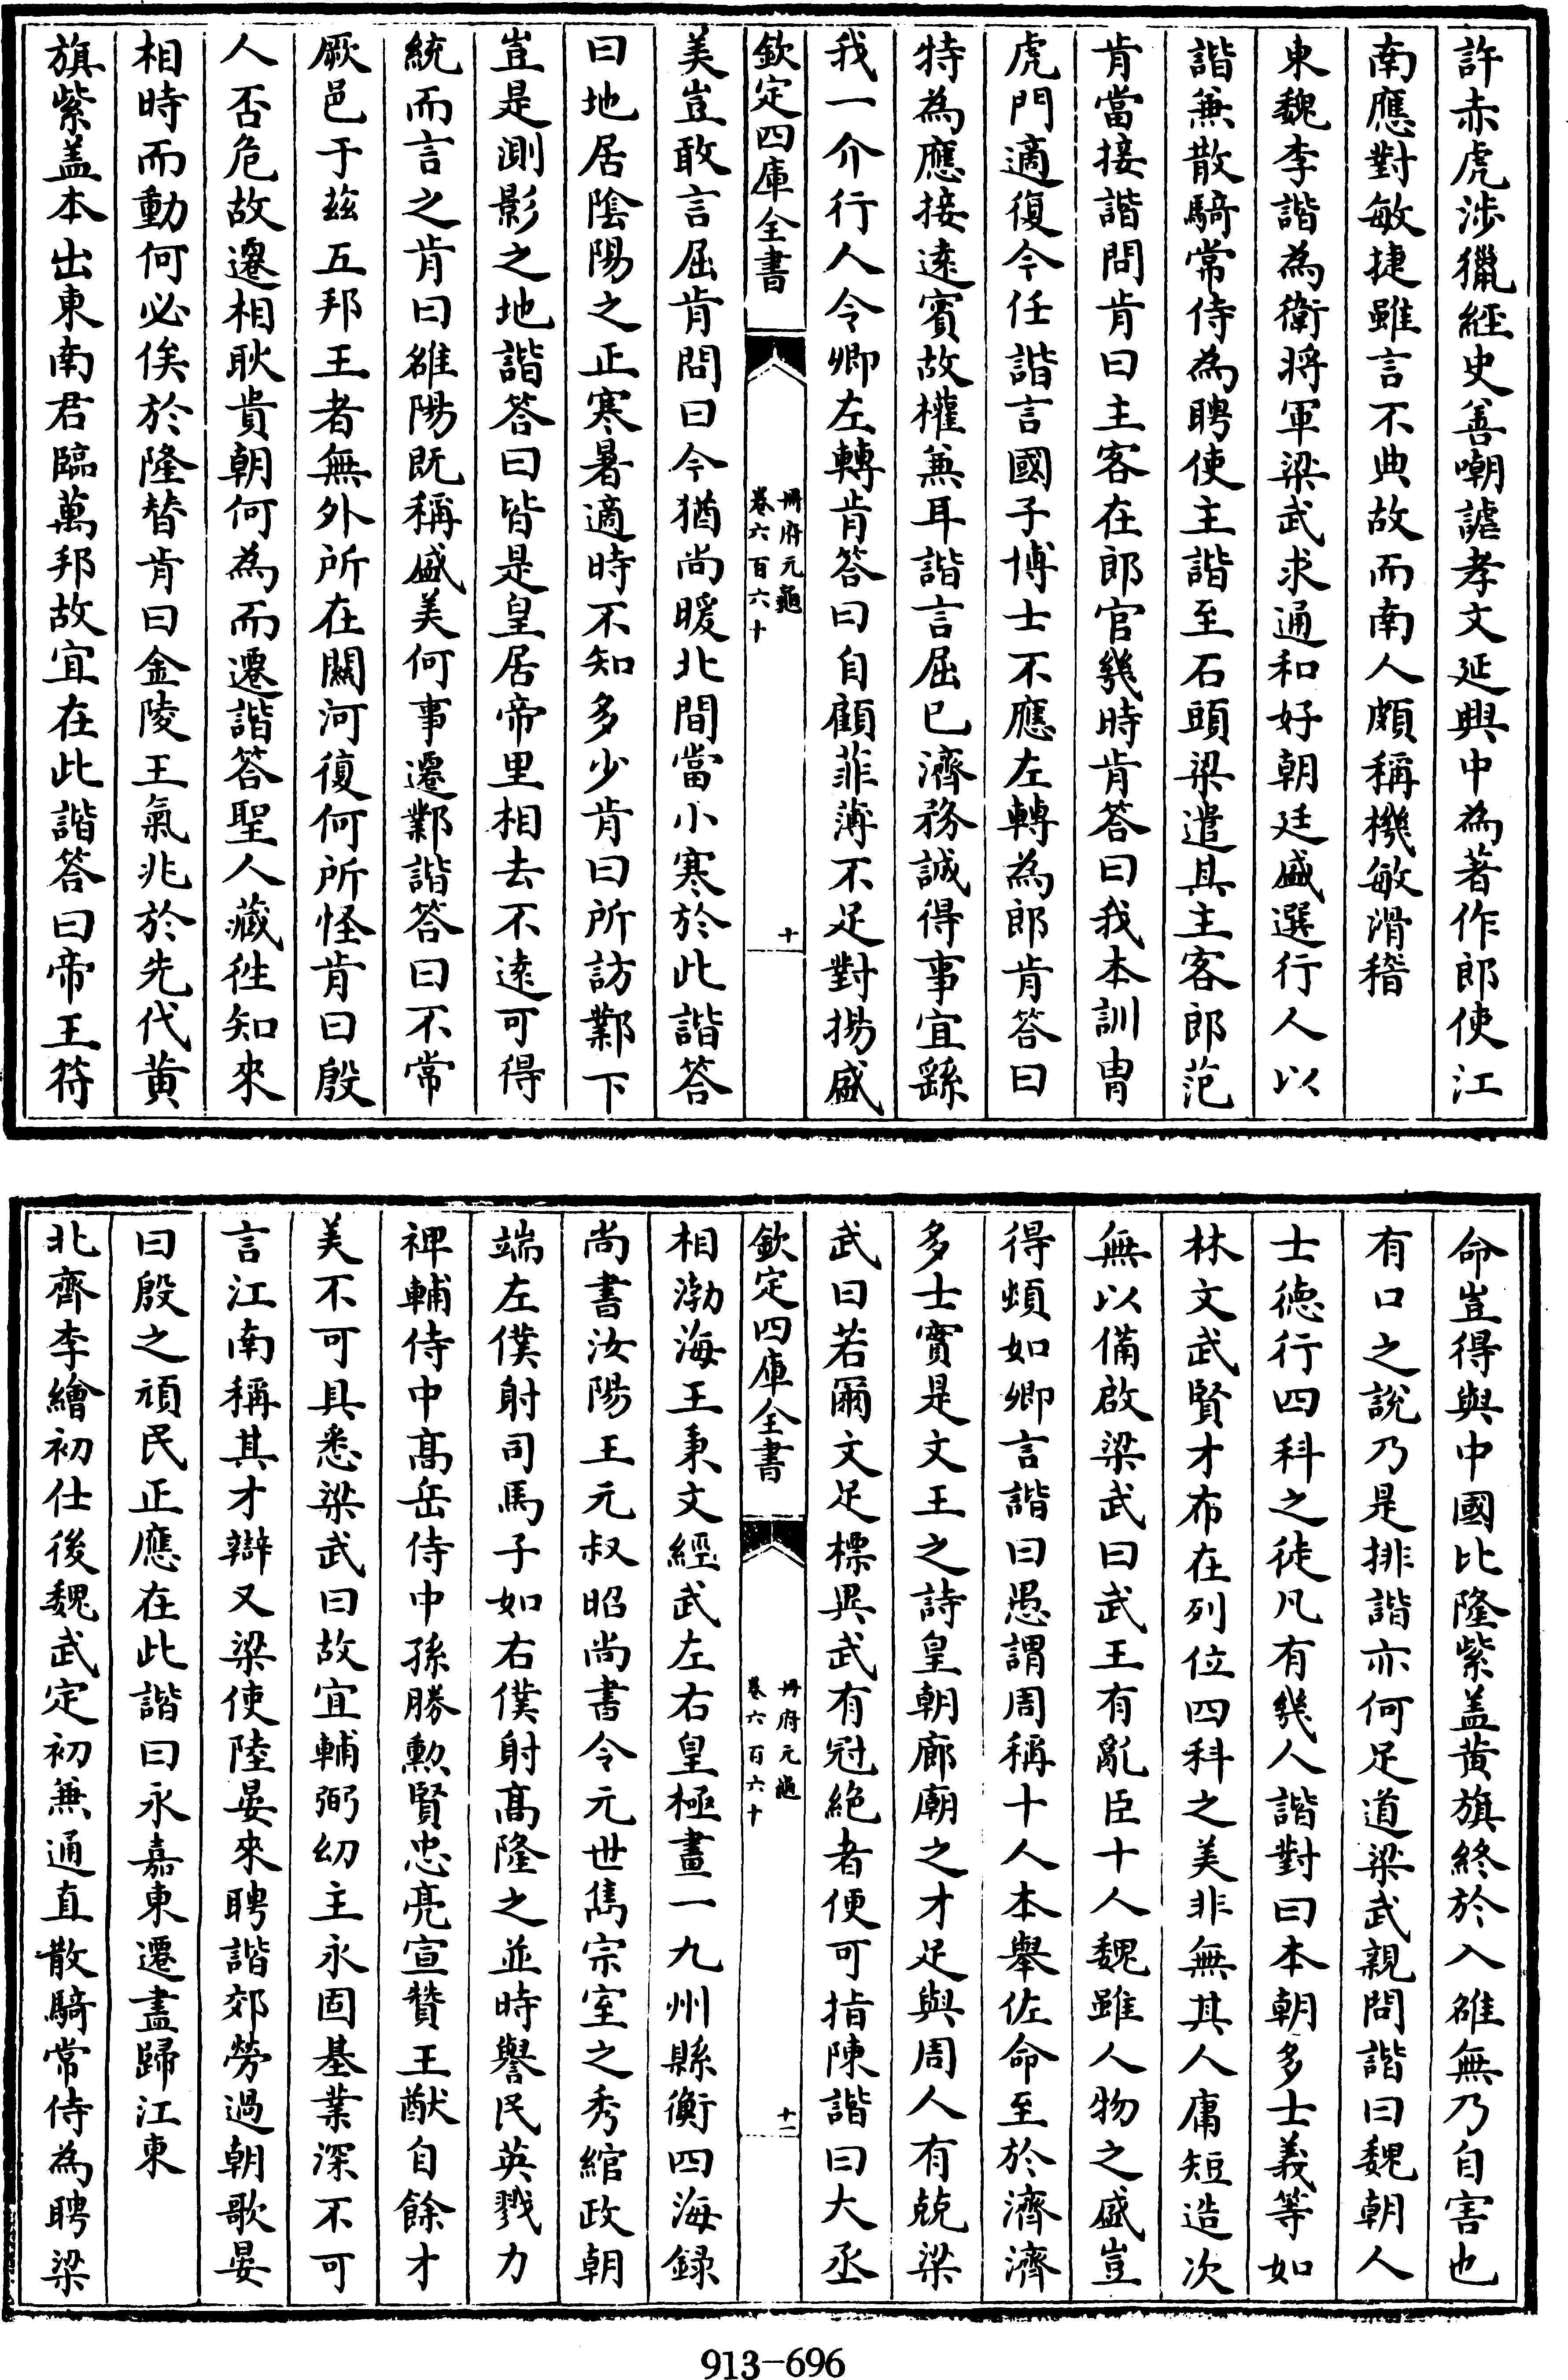 許赤虎涉獵經史善嘲謔孝文延興中為著作郎使江
南應對敏捷雖言不典故而南人頗稱機敏滑稽
東魏李諧為衛將軍梁武求通和好朝廷盛選行人以
諧兼散騎常侍為聘使主諧至石頭梁遣其主客郎范
胥當接諧問胥曰主客在郎官幾時胥答曰我本訓冑
虎門適復今任諧言國子博士不應左轉為郎胥答曰
特為應接逺賓故權兼耳諧言屈已濟務誠得事宜繇
我一介行人令卿左轉胥答曰自顧菲薄不足對揚盛
欽定四庫全書
冊府元龜
卷六百六十
十
美豈敢言屈胥問曰今猶尚暖北間當小寒於此諧答
曰地居陰陽之正寒暑適時不知多少胥曰所訪鄴下
豈是測影之地諧答曰皆是皇居帝里相去不逺可得
統而言之胥曰雒陽既稱盛美何事遷鄴諧答曰不常
厥邑于茲五邦王者無外所在關河復何所怪胥曰殷
人否危故遷相耿貴朝何為而遷諧答聖人藏徃知來
相時而動何必俟於隆替胥曰金陵王氣兆於先代黃
旗紫盖本出東南君臨萬邦故宜在此諧答曰帝王符
命豈得與中國比隆紫盖黃旗終於入雒無乃自害也
有口之說乃是排諧亦何足道梁武親問諧曰魏朝人
士徳行四科之徒凡有幾人諧對曰本朝多士義等如
林文武賢才布在列位四科之美非無其人庸短造次
無以備啟梁武曰武王有亂臣十人魏雖人物之盛豈
得頓如卿言諧曰愚謂周稱十人本舉佐命至於濟濟
多士實是文王之詩皇朝廊廟之才足與周人有兢梁
武曰若爾文足標異武有冠絶者便可指陳諧曰大丞
欽定四庫全書
冊府元龜
卷六百六十
十一
相渤海王秉文經武左右皇極畫一九州縣衡四海録
尚書汝陽王元叔昭尚書令元世雋宗室之秀綰政朝
端左僕射司馬子如右僕射髙隆之並時譽民英戮力
裨輔侍中髙岳侍中孫勝勲賢忠亮宣贊王猷自餘才
美不可具悉梁武曰故宜輔弼幼主永固基業深不可
言江南稱其才辯又梁使陸晏來聘諧郊勞過朝歌晏
曰殷之頑民正應在此諧曰永嘉東遷盡歸江東
北齊李繪初仕後魏武定初兼通直散騎常侍為聘梁
913-696